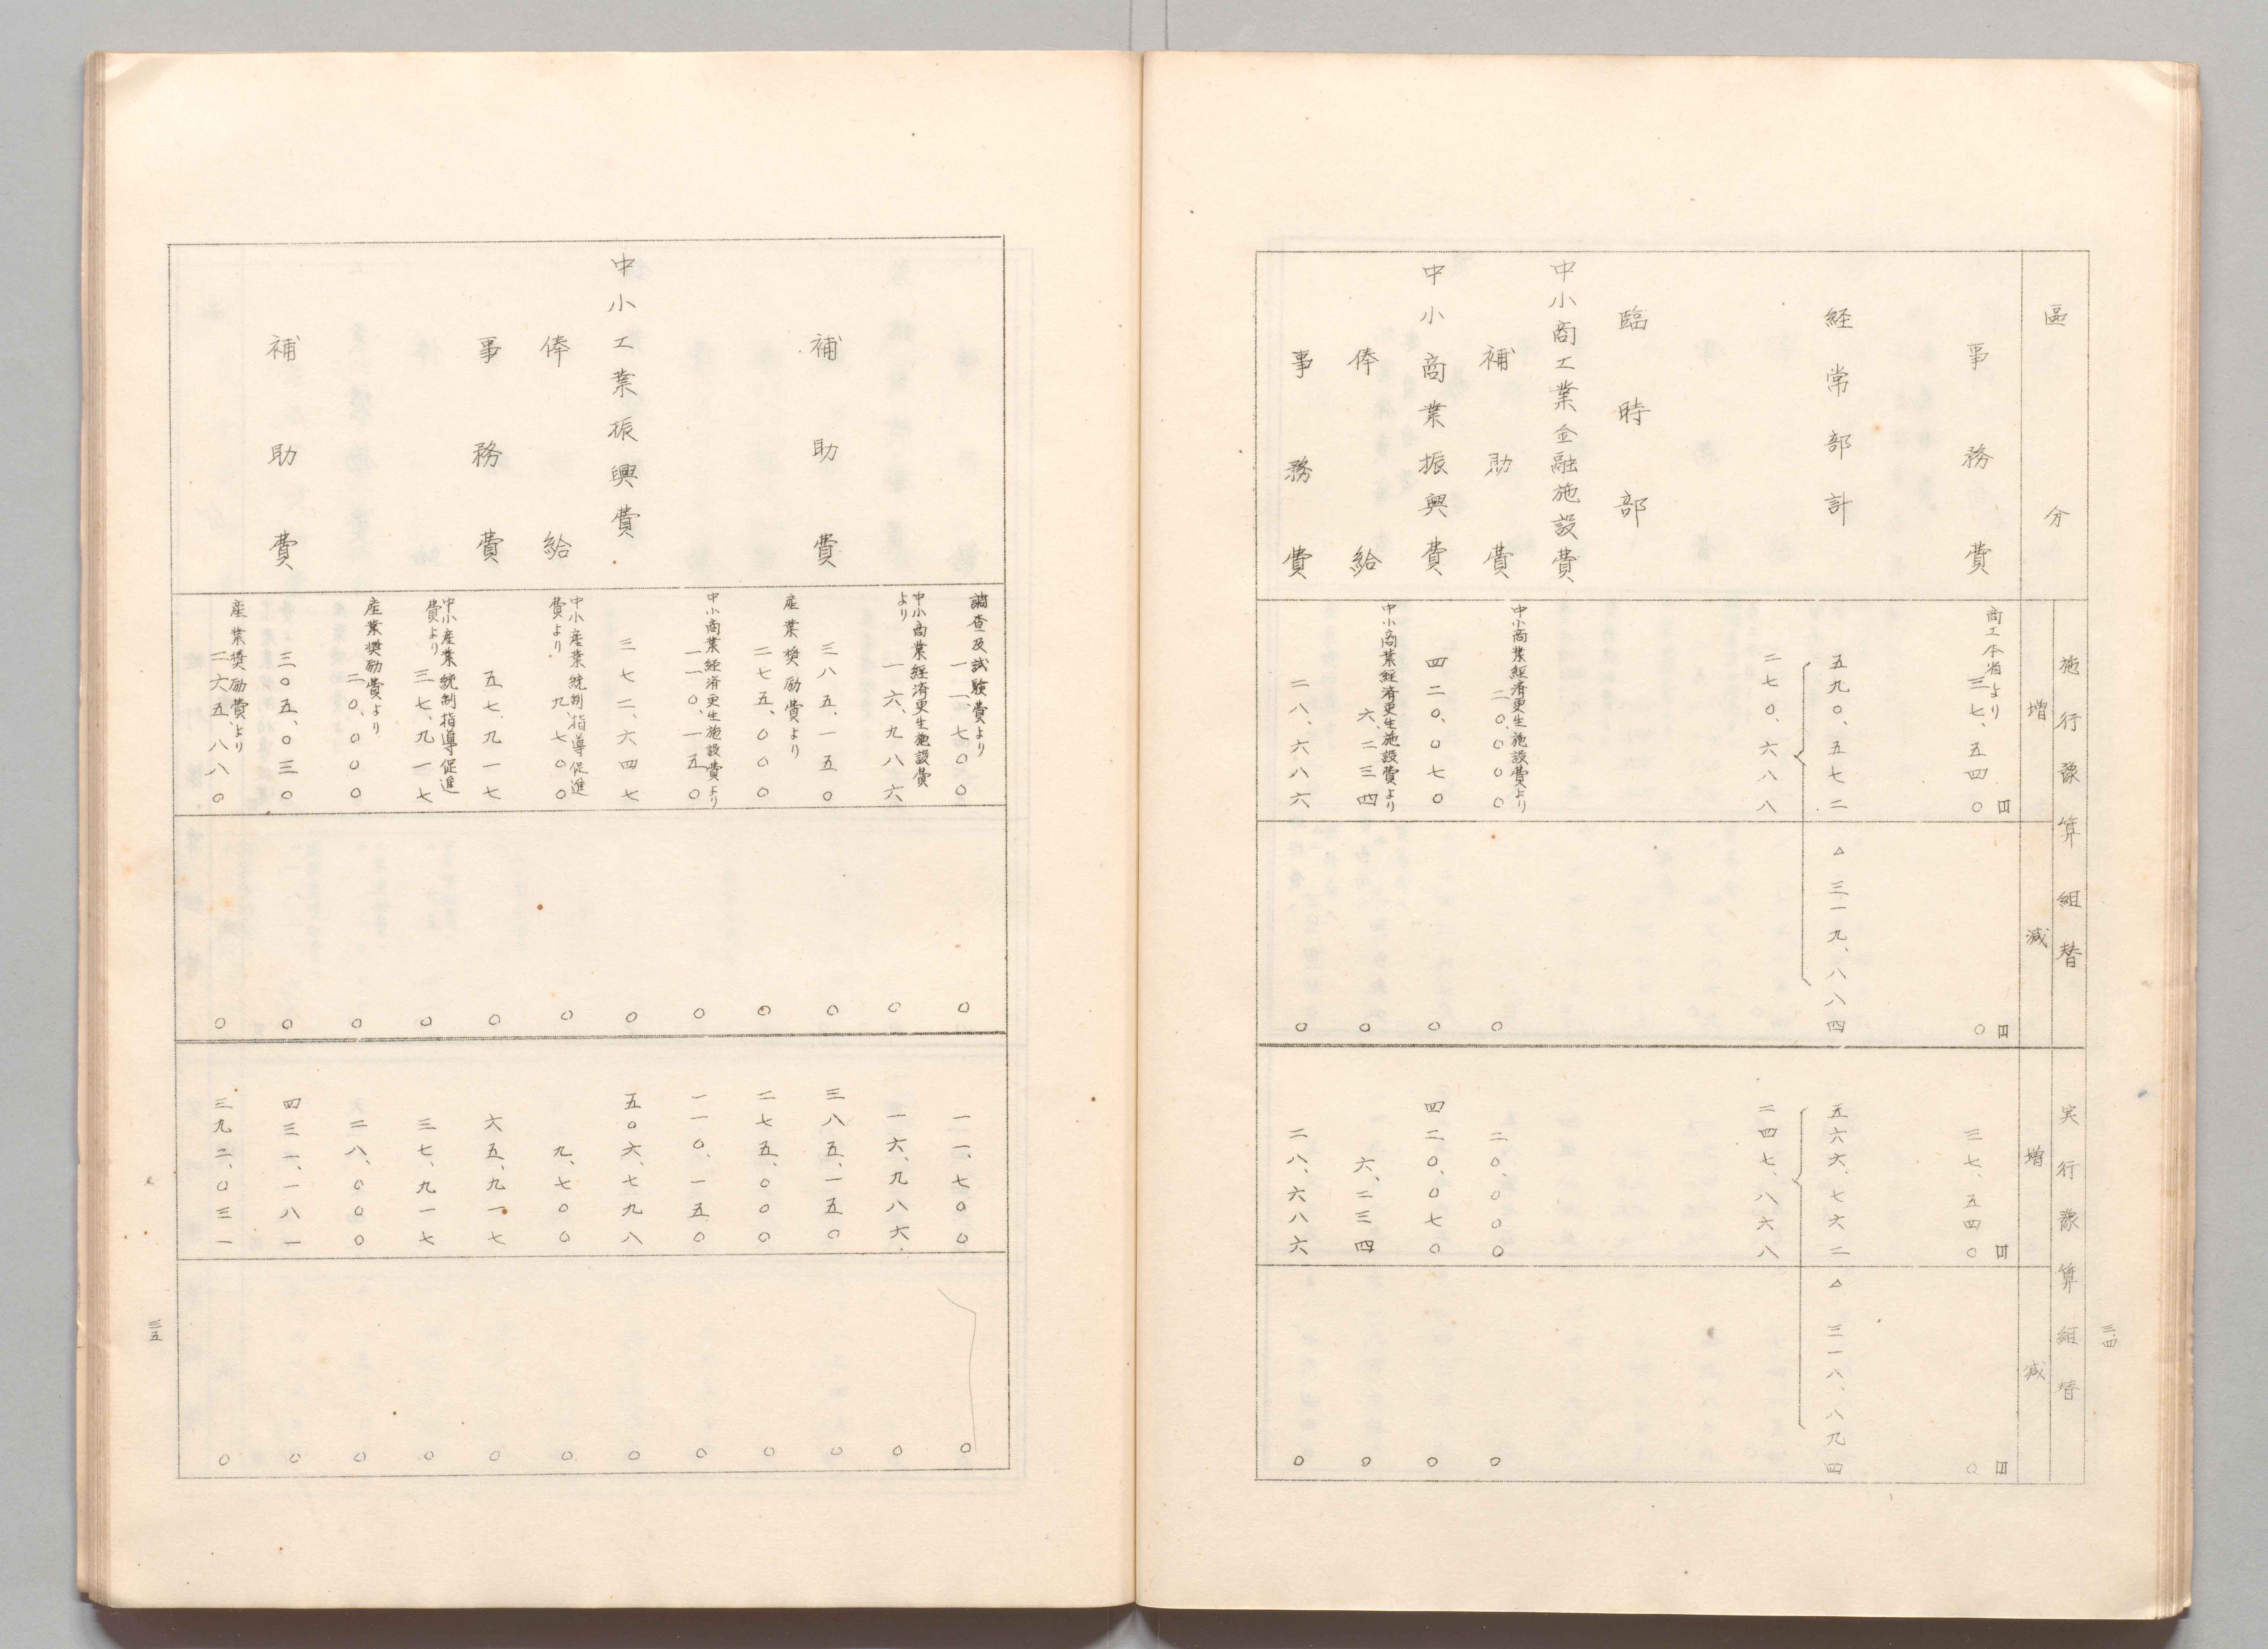 三四
施行豫算組替 実行豫算組替
區分 増 減 増 減
事務費 商工本省より 三七、五四〇円 〇円 三七、五四〇円 〇円
経常部計 五九〇、五七二 △三一九、八八四 五六六、七六二 △三一八、八九四
二七〇、六八八 二四七、八六八
臨時部
中小商工業金融施設費
補助費 中小商業経済更生施設費より 二〇、〇〇〇 〇 二〇、〇〇〇 〇
中小商業振興費 四二〇、〇七〇 〇 四二〇、〇七〇 〇
俸給 中小商業経済更生施設費より 六、二三四 〇 六、二三四 〇
事務費 二八、六八六 〇 二八、六八六 〇
調査及試験費より 一一、七〇〇 〇 一一、七〇〇 〇
中小商業経済更生施設費より 一六、九八六 〇 一六、九八六 〇
補助費 三八五、一五〇 〇 三八五、一五〇 〇
産業奨励費より 二七五、〇〇〇 〇 二七五、〇〇〇 〇
中小商業経済更生施設費より 一一〇、一五〇 〇 一一〇、一五〇 〇
中小工業振興費 三七二、六四七 〇 五〇六、七九八 〇
俸給 中小産業統制指導促進費より 九、七〇〇 〇 九、七〇〇 〇
事務費 五七、九一七 〇 六五、九一七 〇
中小産業統制指導促進費より 三七、九一七 〇 三七、九一七 〇
産業奨励費より 二〇、〇〇〇 〇 二八、〇〇〇 〇
補助費 三〇五、〇三〇 〇 四三一、一八一 〇
産業奨励費より 二六五、八八〇 〇 三九二、〇三一 〇
三五